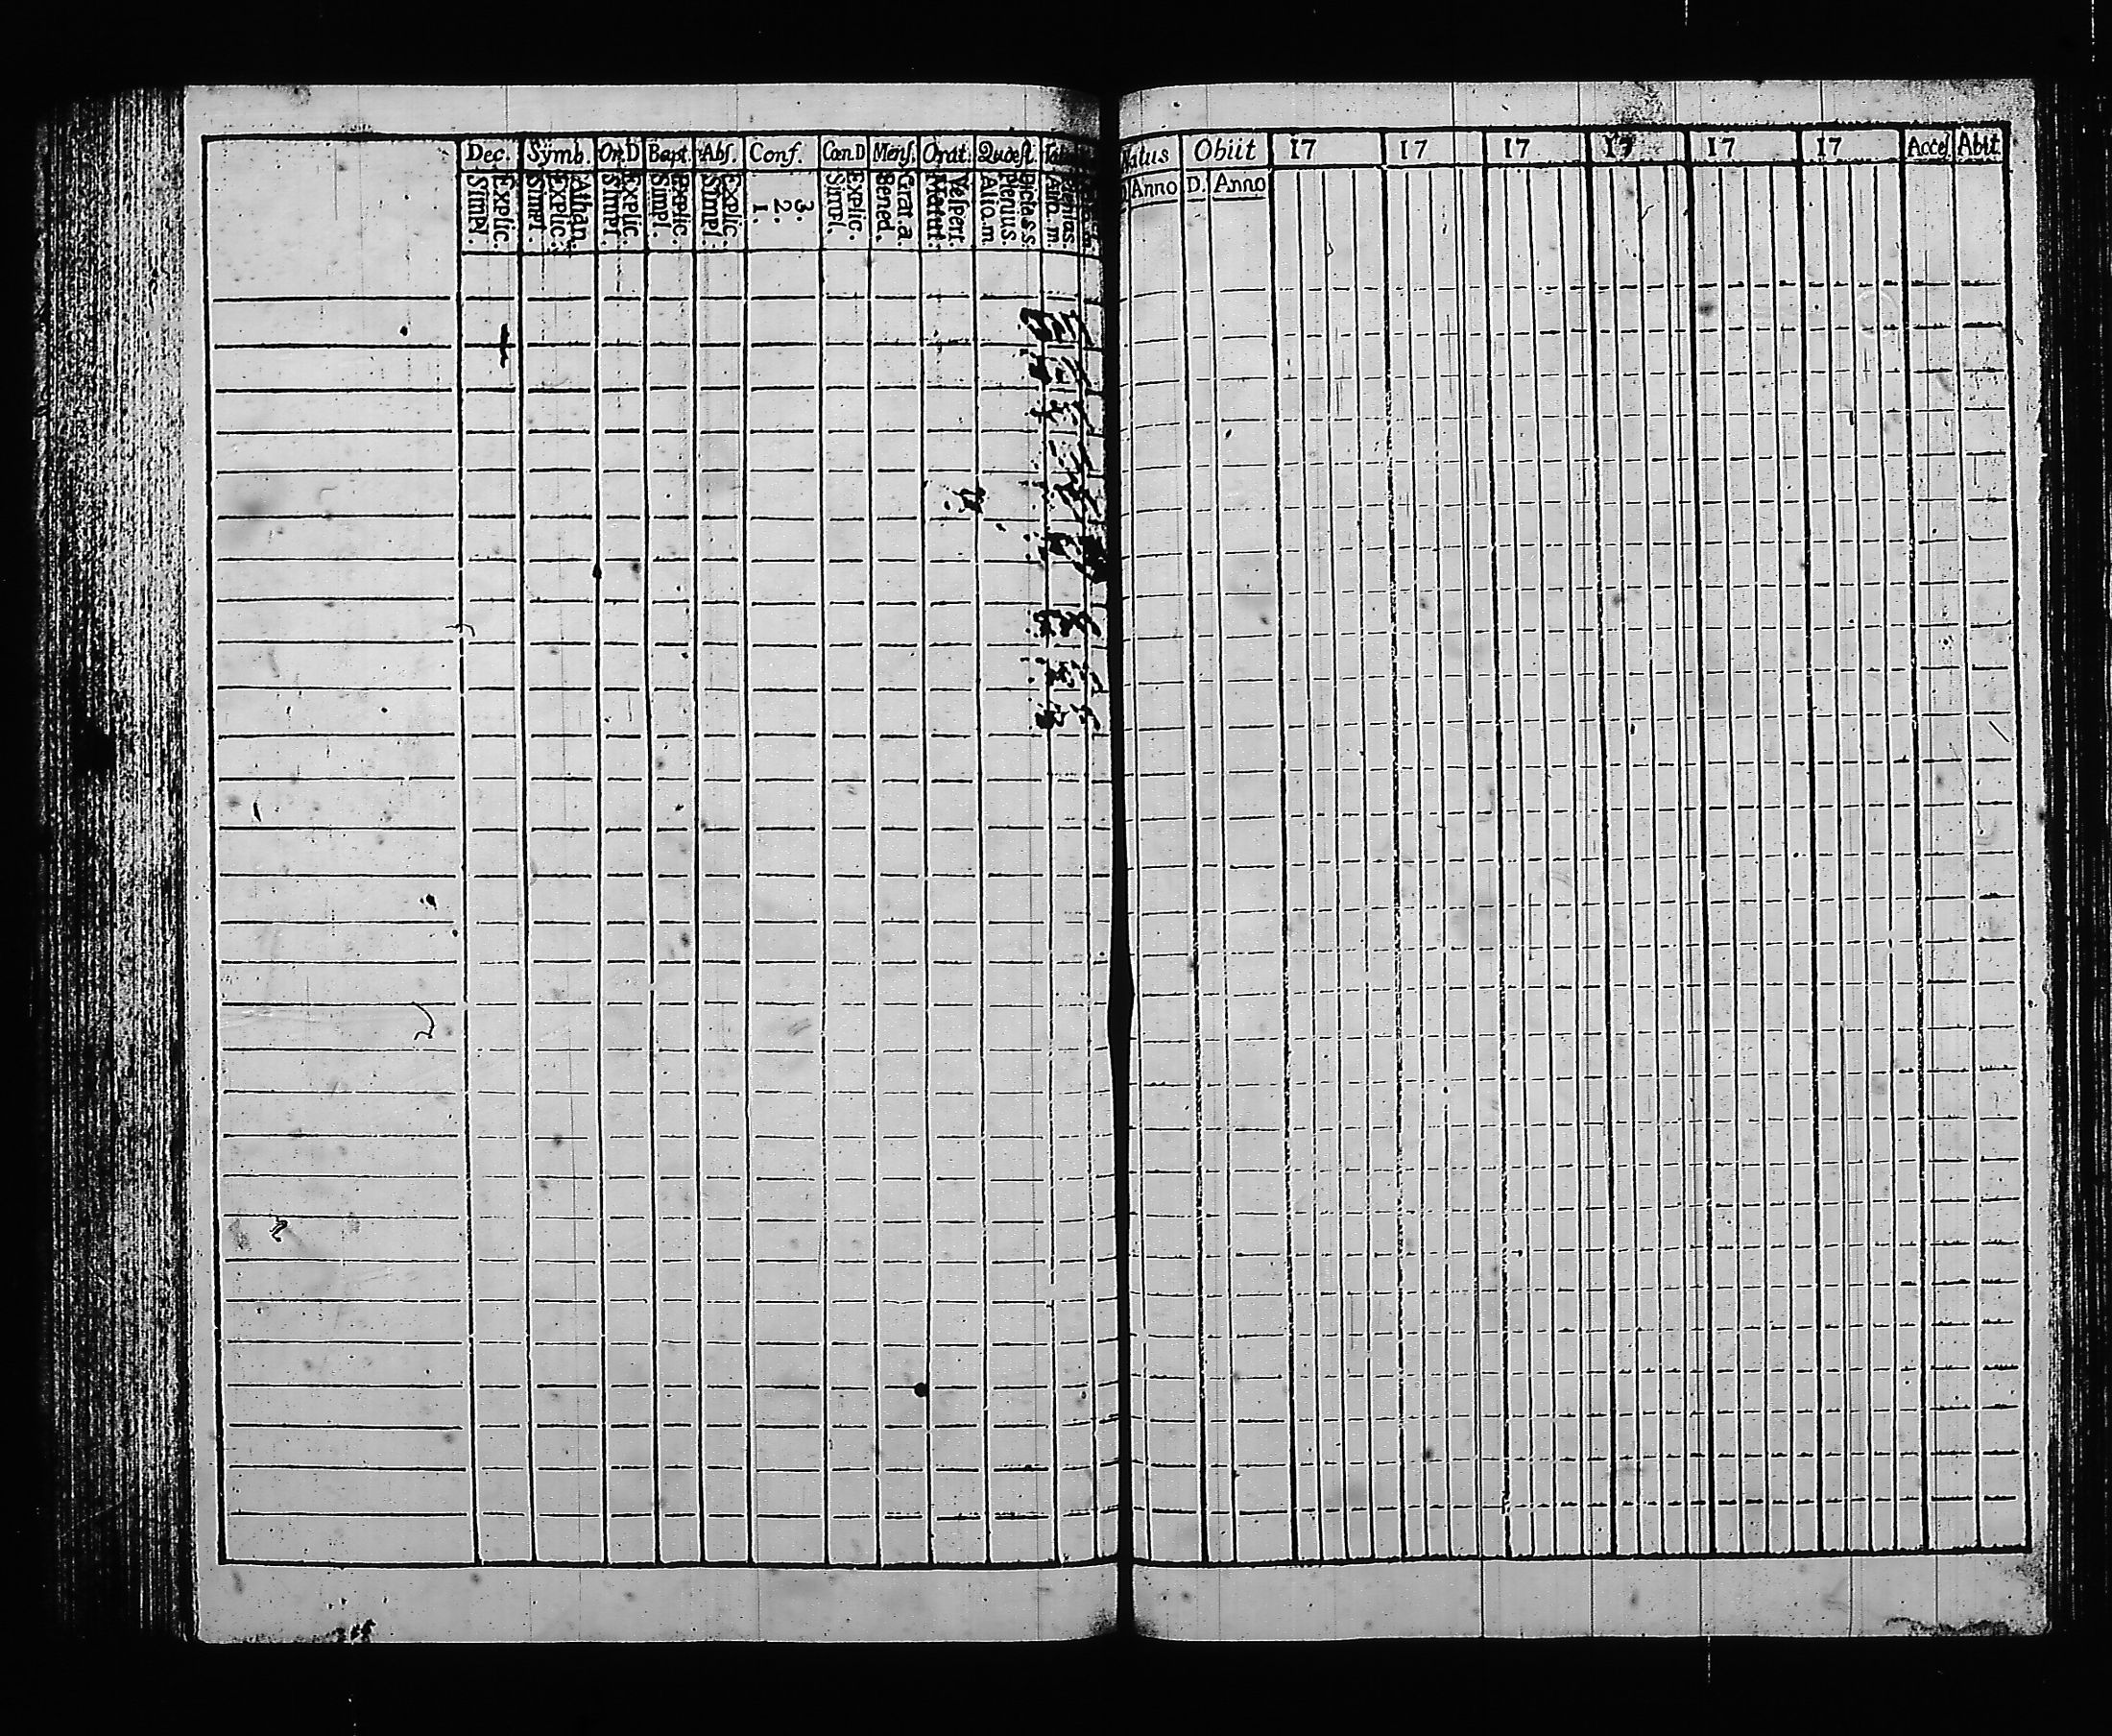 Dec. Symb. Or.D Bapt. Abs. Conf. Cœn.D Mens. Orat. Quæst.
Explic. Simpl.
Athan. Explic. Simpl.
Explic. Simpl.
Explic. Simpl.
Explic. Simpl.
3. 2. 1.
Explic. Simpl.
Grat. a. Bened.
Vesperr. Matut.
Dicta s.s. Plenius. Alio. m.
Natus Obiit 17 17 17 17 17 17 Acces. Abiit
Anno D. Anno